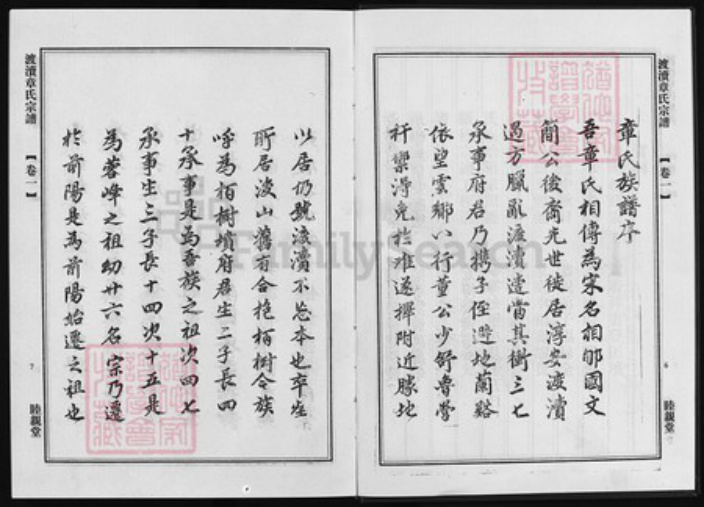 渡瀆章氏宗譜
【卷一】
6
睦親堂
章氏族譜序
吾章氏相傳為宋名相郇國文
簡公後裔先世徙居淳安渡瀆
遇方臘亂渡瀆適當其衝三七
承事府君乃携子侄避地蘭谿
依望雲鄉八行董公少舒魯營
扞禦得免於难遂擇附近勝地
以居仍號渡瀆不忘本也卒葬
所居後山舊有合抱栢樹合族
呼為栢樹墳府君生二子長四
十承事是為香族之祖次四七
承事生三子長十四次十五是
為蓉峰之祖幼廿六名宗乃遷
於前陽是為前陽始遷之祖也
渡瀆章氏宗譜
【卷一】
7
睦親堂
FamilySearch